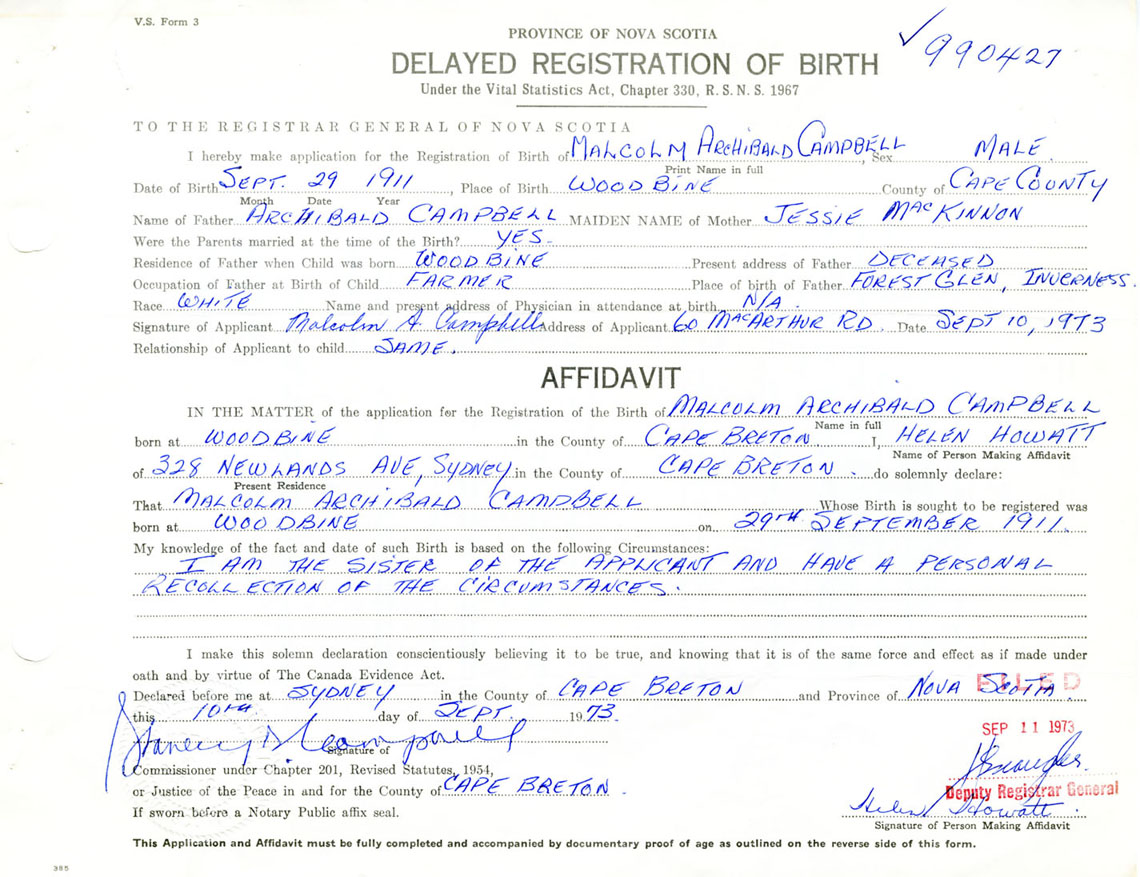 V.S. Form 3
PROVINCE OF NOVA SCOTIA
✓990427
DELAYED REGISTRATION OF BIRTH
Under the Vital Statistics Act, Chapter 330, R.S.N.S. 1967
TO THE REGISTRAR GENERAL OF NOVA SCOTIA
I hereby make application for the Registration of Birth of MALCOLM ARCHIBALD CAMPBELL, Sex MALE
Print Name in full
Date of Birth SEPT. 29 1911, Place of Birth WOODBINE County of CAPE COUNTY
Month Date Year
Name of Father ARCHIBALD CAMPBELL MAIDEN NAME of Mother JESSIE MACKINNON
Were the Parents married at the time of the Birth? YES.
Residence of Father when Child was born WOODBINE Present address of Father DECEASED
Occupation of Father at Birth of Child FARMER Place of birth of Father FOREST GLEN, INVERNESS.
Race WHITE Name and present address of Physician in attendance at birth N/A.
Signature of Applicant Malcolm A Campbell Address of Applicant 60 MACARTHUR RD. Date SEPT 10, 1973
Relationship of Applicant to child SAME.
AFFIDAVIT
IN THE MATTER of the application for the Registration of the Birth of MALCOLM ARCHIBALD CAMPBELL
Name in full
born at WOODBINE in the County of CAPE BRETON I, HELEN HOWATT
Name of Person Making Affidavit
of 328 NEWLANDS AVE, SYDNEY in the County of CAPE BRETON. do solemnly declare:
Present Residence
That MALCOLM ARCHIBALD CAMPBELL Whose Birth is sought to be registered was
born at WOODBINE on 29TH SEPTEMBER 1911.
My knowledge of the fact and date of such Birth is based on the following Circumstances:
I AM THE SISTER OF THE APPLICANT AND HAVE A PERSONAL
RECOLLECTION OF THE CIRCUMSTANCES.
I make this solemn declaration conscientiously believing it to be true, and knowing that it is of the same force and effect as if made under
oath and by virtue of The Canada Evidence Act.
Declared before me at SYDNEY in the County of CAPE BRETON and Province of NOVA SCOTIA
FILED
this 10TH day of SEPT. 1973.
SEP 11 1973
Signature of
Commissioner under Chapter 201, Revised Statutes, 1954,
or Justice of the Peace in and for the County of CAPE BRETON.
Deputy Registrar General
If sworn before a Notary Public affix seal.
Helen Howatt
Signature of Person Making Affidavit
This Application and Affidavit must be fully completed and accompanied by documentary proof of age as outlined on the reverse side of this form.
385